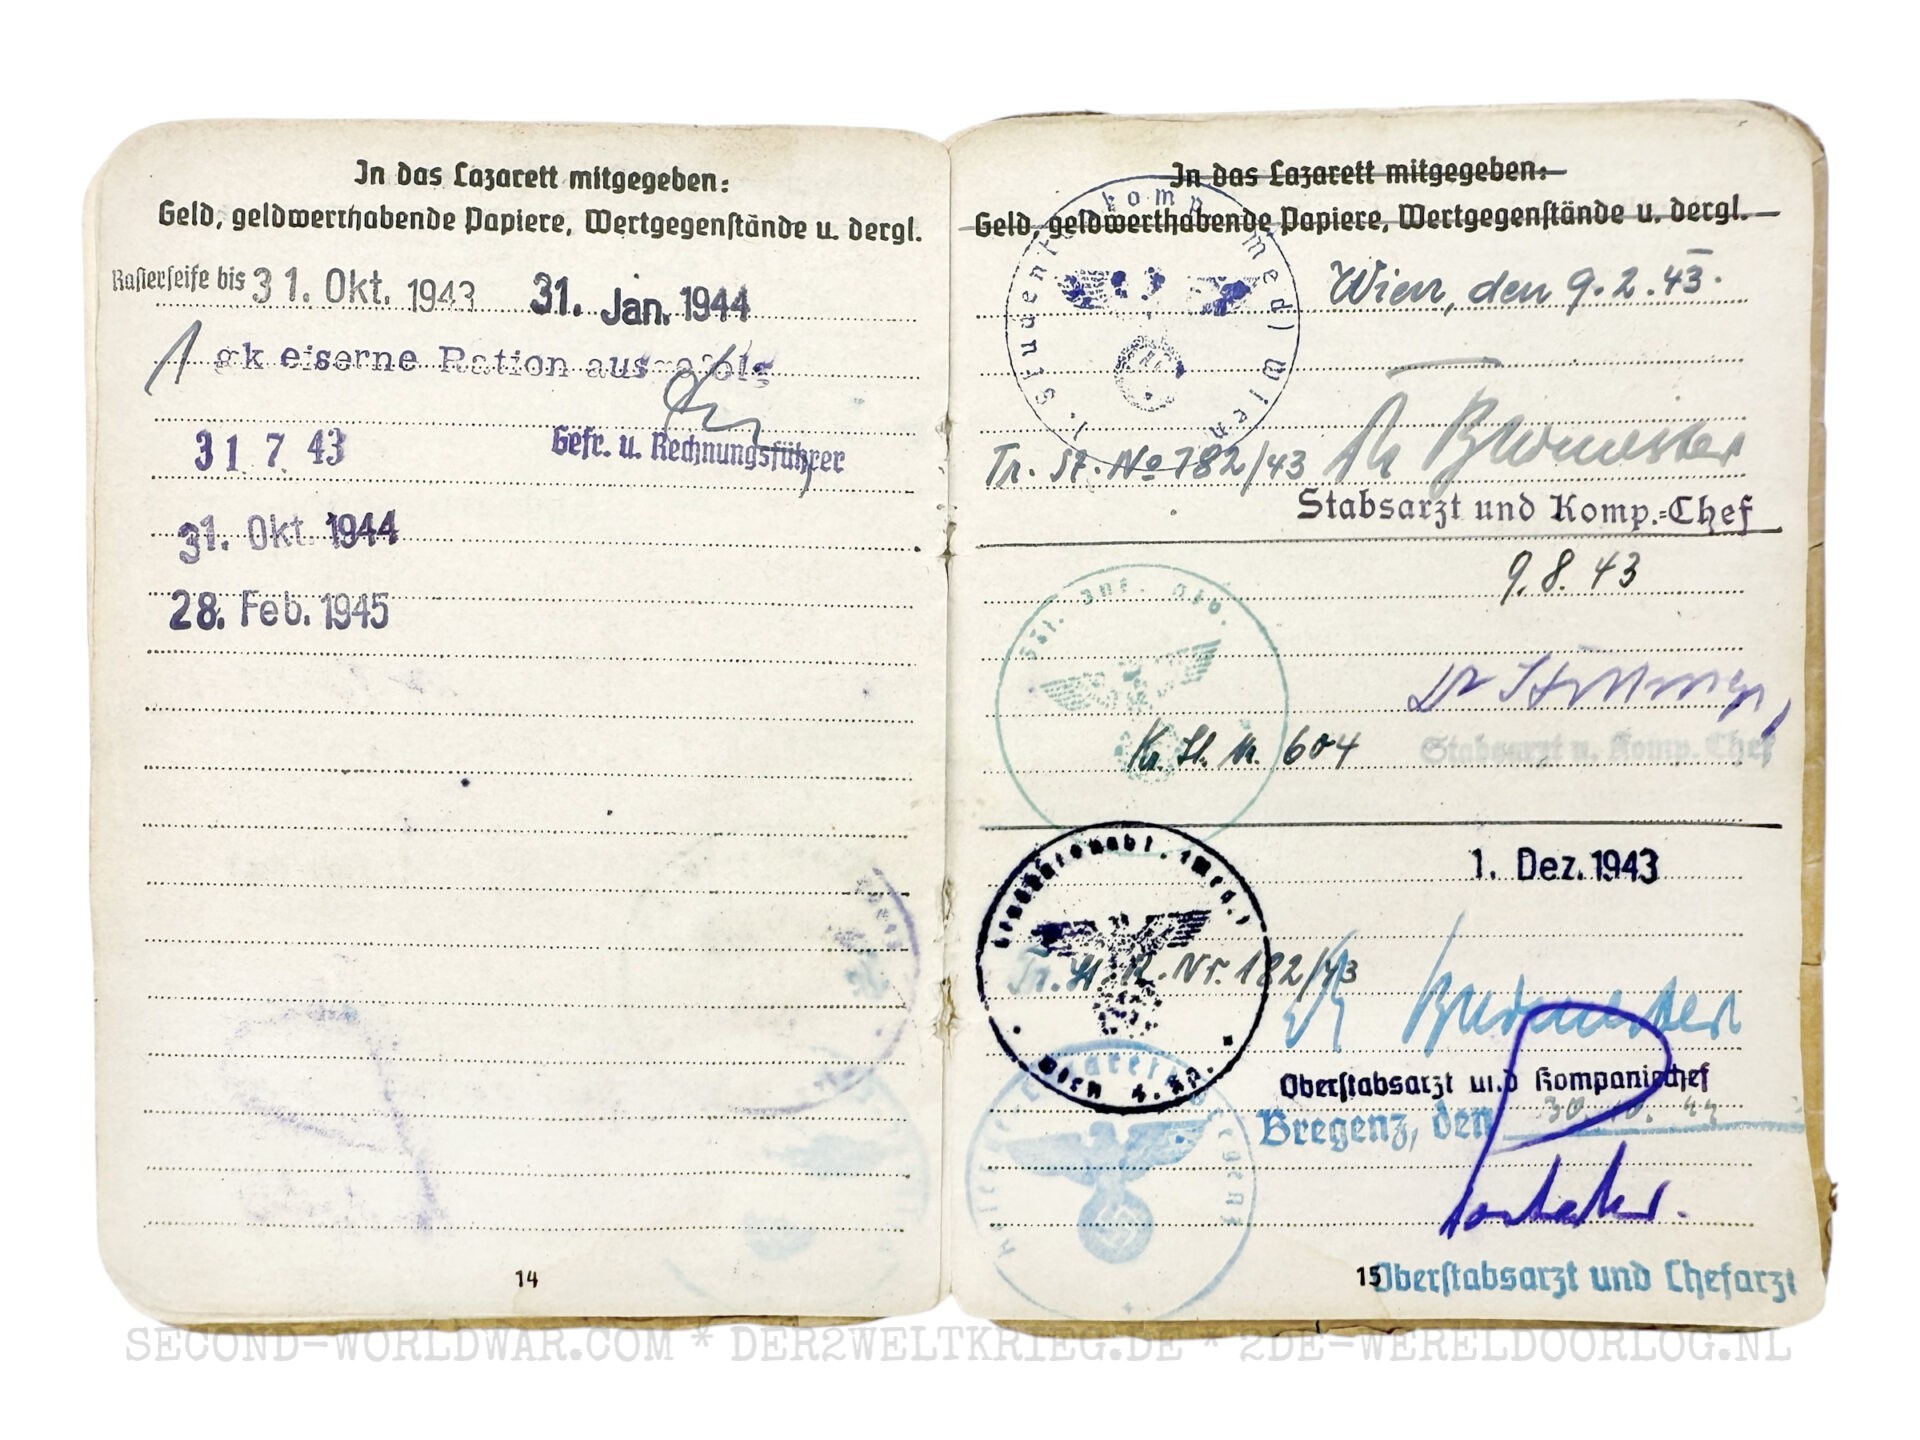 In das Lazarett mitgegeben:
Geld, geldwerthabende Papiere, Wertgegenstände u. dergl.
Rasierseife bis 31. Okt. 1943 31. Jan. 1944
1 gk eiserne Ration
31 7 43 Gefr. u. Rechnungsführer
31. Okt. 1944
28. Feb. 1945
14
In das Lazarett mitgegeben:
Geld, geldwerthabende Papiere, Wertgegenstände u. dergl.
1. Studentenkomp (med) Wien
Wien, den 9.2.43.
Tr. St. No 782/43
Stabsarzt und Komp.-Chef
9.8.43
Kr. St. N. 604
Stabsarzt u. Komp. Chef
1. Dez. 1943
Wien 4. Kp.
Tr. St. R. Nr. 182/43
Oberstabsarzt und Kompaniechef
Bregenz, den
15
Oberstabsarzt und Chefarzt
SECOND-WORLDWAR.COM * DER2WELTKRIEG.DE * 2DE-WERELDOORLOG.NL